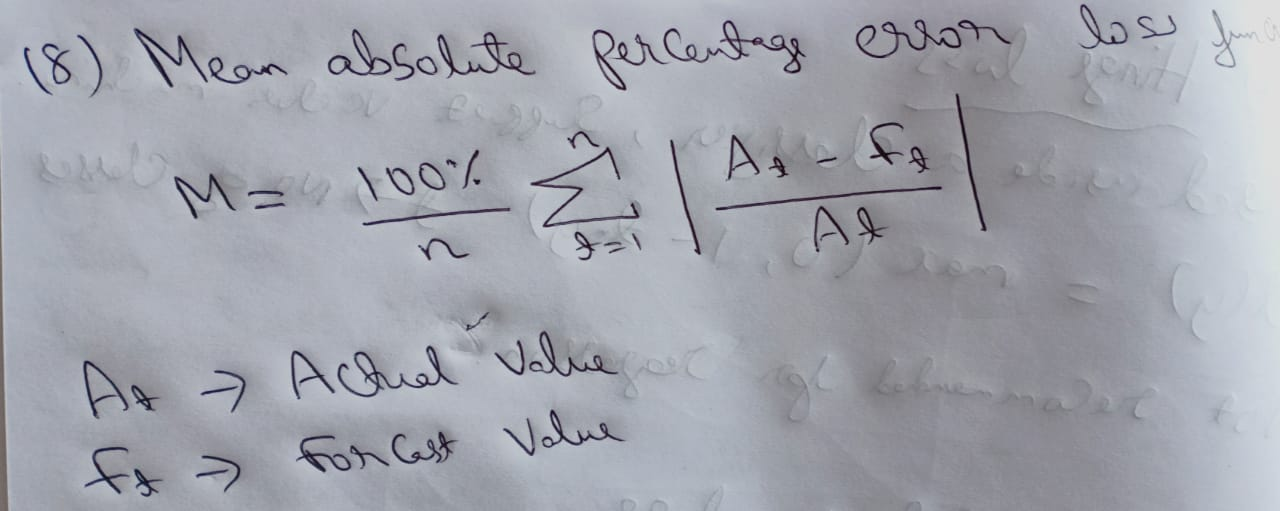 (8) Mean absolute percentage error loss func
M = 100% / n n Σ t=1 | At - Ft / At |
At → Actual Value
Ft → Forcast Value